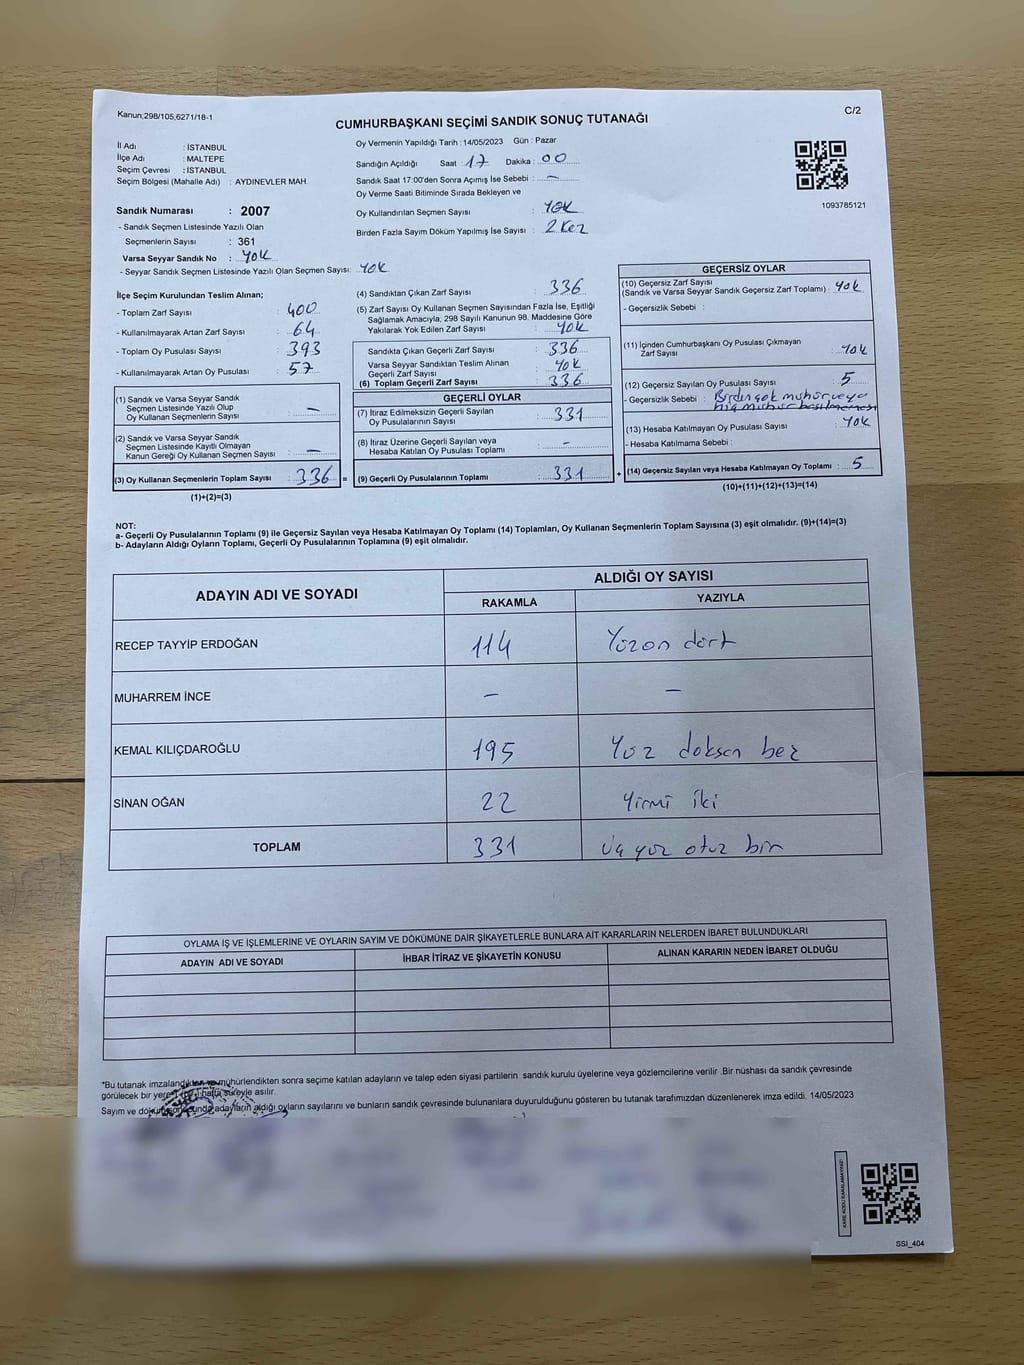 Kanun;298/105,6271/18-1
C/2
CUMHURBAŞKANI SEÇİMİ SANDIK SONUÇ TUTANAĞI
İl Adı : İSTANBUL
İlçe Adı : MALTEPE
Seçim Çevresi : İSTANBUL
Seçim Bölgesi (Mahalle Adı) : AYDINEVLER MAH.
Sandık Numarası : 2007
- Sandık Seçmen Listesinde Yazılı Olan
Seçmenlerin Sayısı : 361
Varsa Seyyar Sandık No : YOK
- Seyyar Sandık Seçmen Listesinde Yazılı Olan Seçmen Sayısı: YOK
Oy Vermenin Yapıldığı Tarih :14/05/2023 Gün : Pazar
Sandığın Açıldığı Saat : 17 Dakika : 00
Sandık Saat 17:00'den Sonra Açımış İse Sebebi : —
Oy Verme Saati Bitiminde Sırada Bekleyen ve
Oy Kullandırılan Seçmen Sayısı : YOK
Birden Fazla Sayım Döküm Yapılmış İse Sayısı : 2 kez
1093785121
İlçe Seçim Kurulundan Teslim Alınan;
- Toplam Zarf Sayısı : 400
- Kullanılmayarak Artan Zarf Sayısı : 64
- Toplam Oy Pusulası Sayısı : 393
- Kullanılmayarak Artan Oy Pusulası : 57
(1) Sandık ve Varsa Seyyar Sandık
Seçmen Listesinde Yazılı Olup
Oy Kullanan Seçmenlerin Sayısı : —
(2) Sandık ve Varsa Seyyar Sandık
Seçmen Listesinde Kayıtlı Olmayan
Kanun Gereği Oy Kullanan Seçmen Sayısı : —
(3) Oy Kullanan Seçmenlerin Toplam Sayısı : 336
(1)+(2)=(3)
(4) Sandıktan Çıkan Zarf Sayısı : 336
(5) Zarf Sayısı Oy Kullanan Seçmen Sayısından Fazla İse, Eşitliği
Sağlamak Amacıyla, 298 Sayılı Kanunun 98. Maddesine Göre
Yakılarak Yok Edilen Zarf Sayısı : YOK
Sandıkta Çıkan Geçerli Zarf Sayısı : 336
Varsa Seyyar Sandıktan Teslim Alınan
Geçerli Zarf Sayısı : YOK
(6) Toplam Geçerli Zarf Sayısı : 336
GEÇERLİ OYLAR
(7) İtiraz Edilmeksizin Geçerli Sayılan
Oy Pusulalarının Sayısı : 331
(8) İtiraz Üzerine Geçerli Sayılan veya
Hesaba Katılan Oy Pusulası Toplamı : -
= (9) Geçerli Oy Pusulalarının Toplamı : 331
GEÇERSİZ OYLAR
(10) Geçersiz Zarf Sayısı
(Sandık ve Varsa Seyyar Sandık Geçersiz Zarf Toplamı) : YOK
- Geçersizlik Sebebi :
(11) İçinden Cumhurbaşkanı Oy Pusulası Çıkmayan
Zarf Sayısı : YOK
(12) Geçersiz Sayılan Oy Pusulası Sayısı : 5
- Geçersizlik Sebebi : Birden çok mühür veya
hiç mühür basılmaması
(13) Hesaba Katılmayan Oy Pusulası Sayısı : YOK
- Hesaba Katılmama Sebebi :
+ (14) Geçersiz Sayılan veya Hesaba Katılmayan Oy Toplamı : 5
(10)+(11)+(12)+(13)=(14)
NOT:
a- Geçerli Oy Pusulalarının Toplamı (9) ile Geçersiz Sayılan veya Hesaba Katılmayan Oy Toplamı (14) Toplamları, Oy Kullanan Seçmenlerin Toplam Sayısına (3) eşit olmalıdır. (9)+(14)=(3)
b- Adayların Aldığı Oyların Toplamı, Geçerli Oy Pusulalarının Toplamına (9) eşit olmalıdır.
ADAYIN ADI VE SOYADI
ALDIĞI OY SAYISI
RAKAMLA YAZIYLA
RECEP TAYYİP ERDOĞAN 114 Yüzon dört
MUHARREM İNCE — —
KEMAL KILIÇDAROĞLU 195 Yüz doksan beş
SİNAN OĞAN 22 Yirmi iki
TOPLAM 331 Üç yüz otuz bir
OYLAMA İŞ VE İŞLEMLERİNE VE OYLARIN SAYIM VE DÖKÜMÜNE DAİR ŞİKAYETLERLE BUNLARA AİT KARARLARIN NELERDEN İBARET BULUNDUKLARI
ADAYIN ADI VE SOYADI İHBAR İTİRAZ VE ŞİKAYETİN KONUSU ALINAN KARARIN NEDEN İBARET OLDUĞU
*Bu tutanak imzalandıktan ve mühürlendikten sonra seçime katılan adayların ve talep eden siyasi partilerin sandık kurulu üyelerine veya gözlemcilerine verilir .Bir nüshası da sandık çevresinde
görülecek bir yere 1 (bir) hafta süreyle asılır.
Sayım ve döküm sonucunda adayların aldığı oyların sayılarını ve bunların sandık çevresinde bulunanlara duyurulduğunu gösteren bu tutanak tarafımızdan düzenlenerek imza edildi. 14/05/2023
KARE KODU KARALAMAYINIZ!
SSI_404